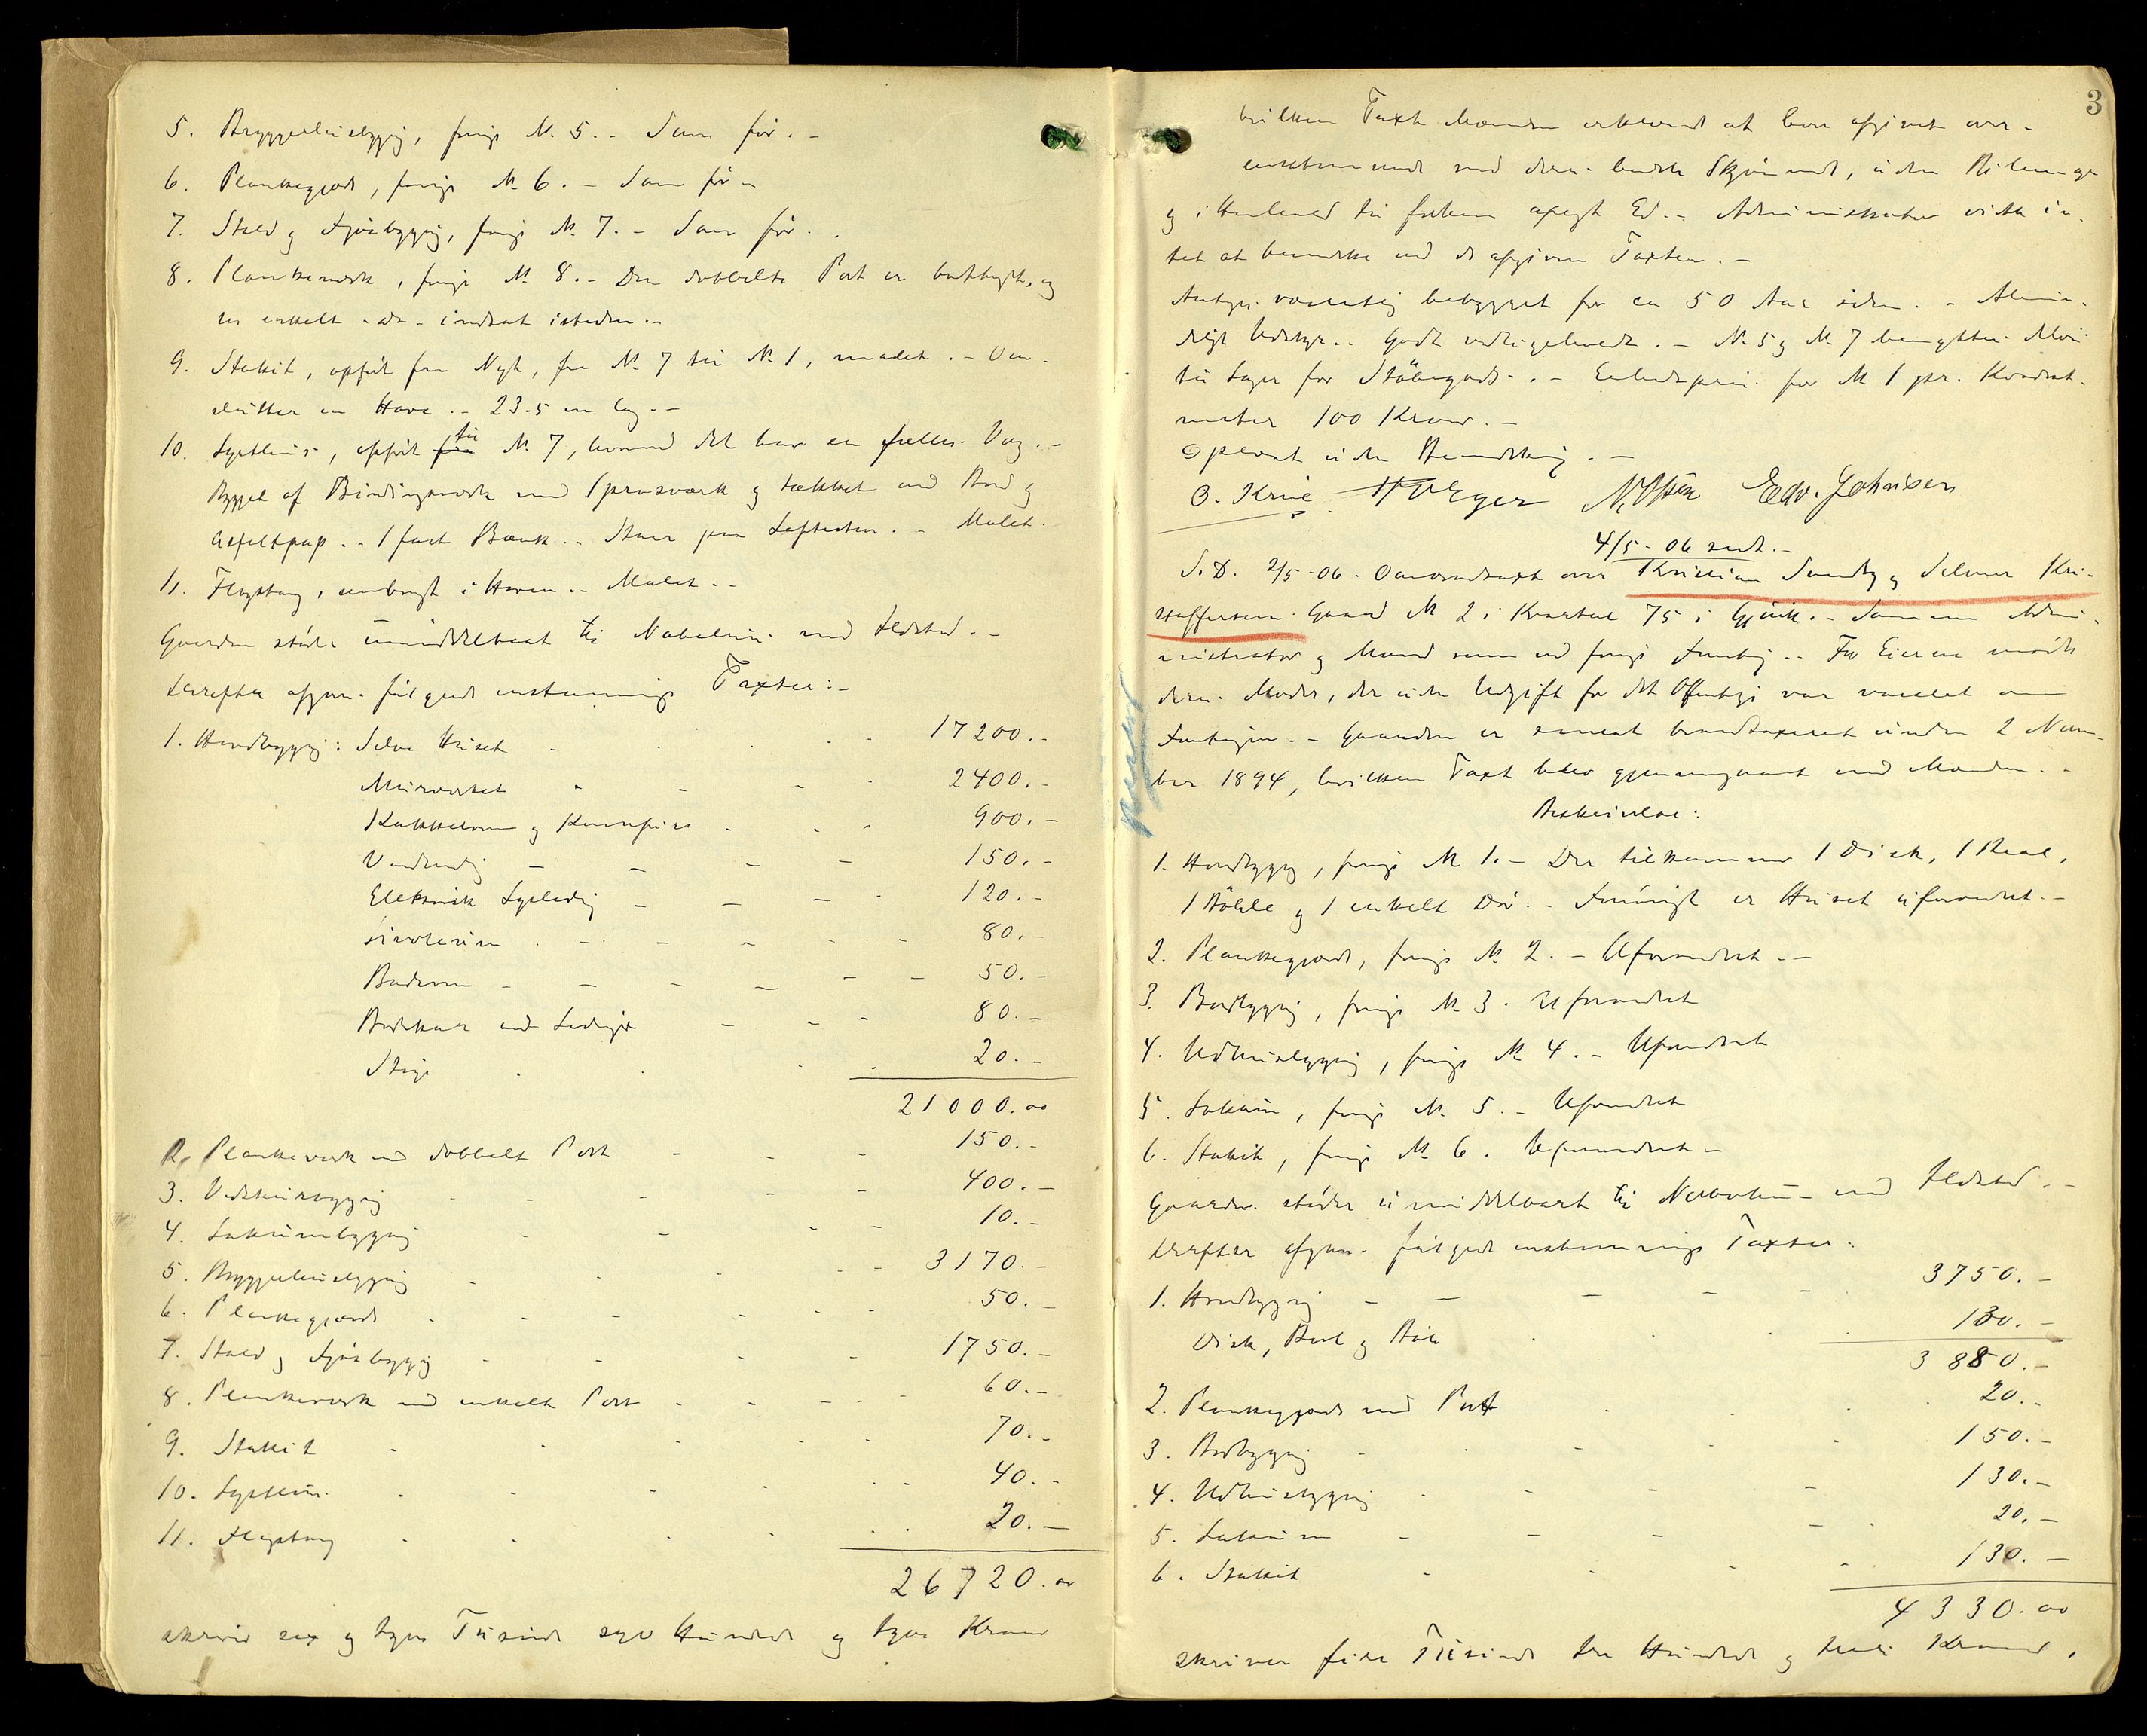 5. Bryggerhusbygning, forrige No. 5. - Som før. -
6. Plankegjærde, forrige No. 6. - Som før -
7. Stald og Fjøsbygning, forrige No. 7. - Som før. -
8. Plankeværk, forrige No. 8. - Den dobbelte Port er borttagt, og
en enkelt - do - indsat isteden. -
9. Stakit, opført fra Nyt, fra No. 7 til No. 1, malet. - Om-
slutter en Have. - 23.5 m lg. -
10. Lysthus, opført til No. 7, hvormed det har en fælles Væg. -
Bygget af Bindingsværk med Sprosværk og tækket med Bord og
Asfaltpap. - 1 fast Bænk. - Malet.
11. Flagstang, anbragt i Haven. - Malet. -
Gaarden støder umiddelbart til Nabohuse med Ildsted. -
Derefter afgaves følgende enstemmige Taxter: -
1. Hovedbygning: Selve Huset - 17200. -
Murværket - 2400. -
Kakkelovne og Komfurer - 900. -
Vandledning - 150. -
Elektrisk Lysledning - 120. -
Linoleum - 80. -
Badeovn - 50. -
Badekar med Ledninger - 80. -
Stige 20. -
21000.00
2. Plankeværk med dobbelt Port - 150. -
3. Vedskursbygning - 400. -
4. Lokumbygning - 10. -
5. Bryggerhusbygning - 3170. -
6. Plankegjærde - 50. -
7. Stald og Fjøsbygning - 1750. -
8. Plankeværk med enkelt Port - 60. -
9. Stakit - 70. -
10. Lysthus - 40. -
11. Flagstang - 20. -
26720.00
skriver sex og tyve Tusinde syv Hundrede og tyve Kroner
3
hvilken Taxt Mændene erklærede at have afgivet over-
ensstemmende med deres bedste Skjønnende, uden Bihensyn
og i Henhold til forhen aflagt Ed. - Administrator vidste in-
tet at bemærke ved de afgivne Taxter. -
væsentlig bebygget for ca 50 Aar siden. - Almin-
deligt Udstyr. - Godt vedligeholdt. - No. 5 og No. 7 benyttes
til Lager for Støbegods. - Enhedspris for No. 1 pr. Kvadrat-
meter 100 Kroner. -
Oplæst uden Bemærkning. -
O. Krie HOEger Edv. Johnsen
4/5 - 06 sendt. -
S. D. 2/5 - 06. Omvendtaxt over Kristian Sundby og Selmer Kri-
stoffersens Gaard No. 2 i Kvartal 75 i Gjøvik. - Samme Admi-
nistrator og Mænd som ved forrige Forretning. - For Eierne mødte
deres Moder, der uden Udgift for det Offentlige var varslet om
Forretningen. - Gaarden er senest brandtaxeret under 2 Novem-
ber 1894, hvilken Taxt blev gjennemgaaet med Mændene. -
Beskrivelse:
1. Hovedbygning, forrige No. 1. - Der tilkommer 1 Disk, 1 Reol,
1 Hylle og 1 enkelt Dør. - Forøvrigt er Huset uforandret. -
2. Plankegjærde, forrige No. 2. - Uforandret. -
3. Bodbygning, forrige No. 3. Uforandret
4. Udhusbygning, forrige No. 4. - Uforandret
5. Lokum, forrige No. 5. - Uforandret
6. Stakit, forrige No. 6. Uforandret -
Gaarden støder umiddelbart til Nabohuse med Ildsted. -
Derefter afgaves følgende enstemmige Taxter:
1. Hovedbygning - 3750. -
Disk, Reol og Hylle 130. -
3880. -
2. Plankegjærde med Port 20. -
3. Bodbygning - 150. -
4. Udhusbygning - 130. -
5. Lokum - 20. -
6. Stakit - 130. -
4330.00
skriver fire Tusinde tre Hundrede og tredive Kroner,